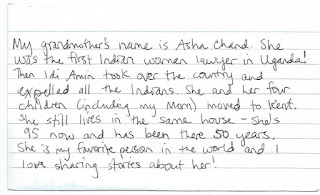 My grandmother's name is Asha Chand. She
was the first Indian women lawyer in Uganda!
Then Idi Amin took over the country and
expelled all the Indians. She and her four
children (including my Mom) moved to Kent.
She still lives in the same house - she's
95 now and has been there 50 years.
She is my favorite person in the world and I
love sharing stories about her!